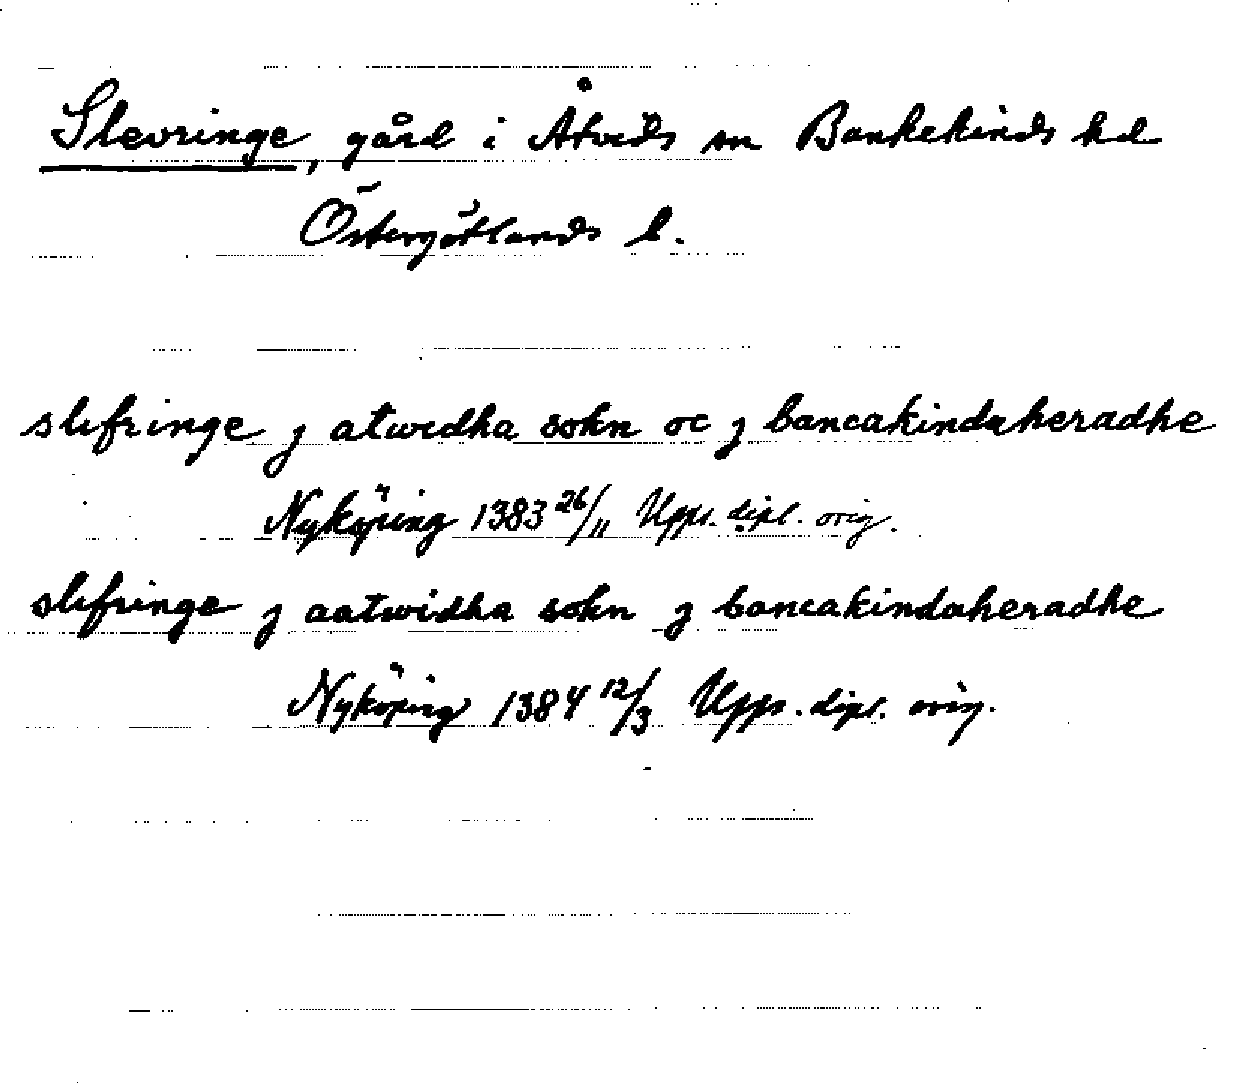 Slevringe, gård i Åtvids sn Bankekinds hd
Östergötlands l.
slefringe j atwidha sokn oc j bancakindaheradhe
Nyköping 1383 26/11 Upps. dipl. orig.
slefringe j aatwidha sokn j bancakindaheradhe
Nyköping 1384 12/3 Upps. dipl. orig.